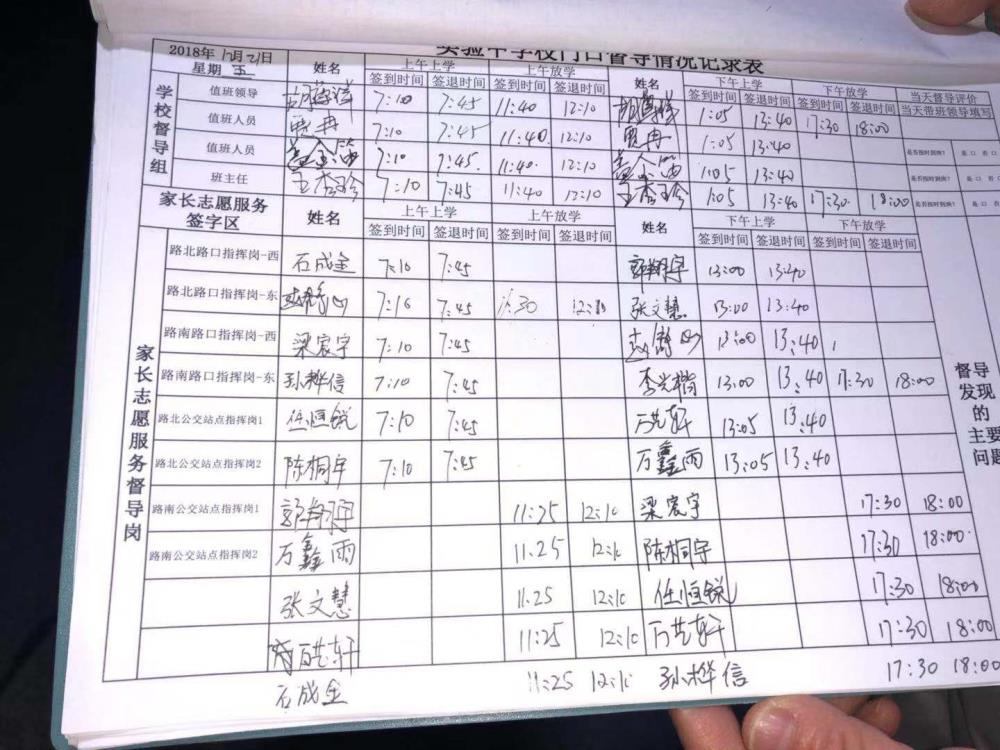 实验中学校门口督导情况记录表
2018年12月21日 星期五 姓名 上午上学 上午放学 姓名 下午上学 下午放学 当天督导评价
签到时间 签退时间 签到时间 签退时间 签到时间 签退时间 签到时间 签退时间 当天带班领导填写
学校督导组
值班领导 7:10 7:45 11:40 12:10 1:05 13:40 17:30 18:00
值班人员 7:10 7:45 11:40 12:10 1:05 13:40 是否按时到岗? 是口 否口
值班人员 7:10 7:45 11:40 12:10 1:05 13:40 是否按时到岗? 是口 否
班主任 王秀珍 7:10 7:45 11:40 12:10 王秀珍 1:05 13:40 17:30 18:00 是否按时到岗? 是口 否
家长志愿服务签字区 姓名 上午上学 上午放学 姓名 下午上学 下午放学
签到时间 签退时间 签到时间 签退时间 签到时间 签退时间 签到时间 签退时间
家长志愿服务督导岗
路北路口指挥岗-西 石成金 7:10 7:45 郭翔宇 13:00 13:40
路北路口指挥岗-东 7:10 7:45 11:30 张文慧 13:00 13:40
路南路口指挥岗-西 梁宸宇 7:10 7:45 13:00 13:40
路南路口指挥岗-东 孙桦信 7:10 7:45 李光楷 13:00 13:40 17:30 18:00
路北公交站点指挥岗1 任恒锐 7:10 7:45 万艺轩 13:05 13:40
路北公交站点指挥岗2 陈桐宇 7:10 7:45 万鑫雨 13:05 13:40
路南公交站点指挥岗1 郭翔宇 11:25 12:10 梁宸宇 17:30 18:00
路南公交站点指挥岗2 万鑫雨 11:25 12:10 陈桐宇 17:30 18:00
张文慧 11:25 12:10 任恒锐 17:30 18:00
万艺轩 11:25 12:10 万艺轩 17:30 18:00
石成金 11:25 12:10 孙桦信 17:30 18:00
督导发现的主要问题